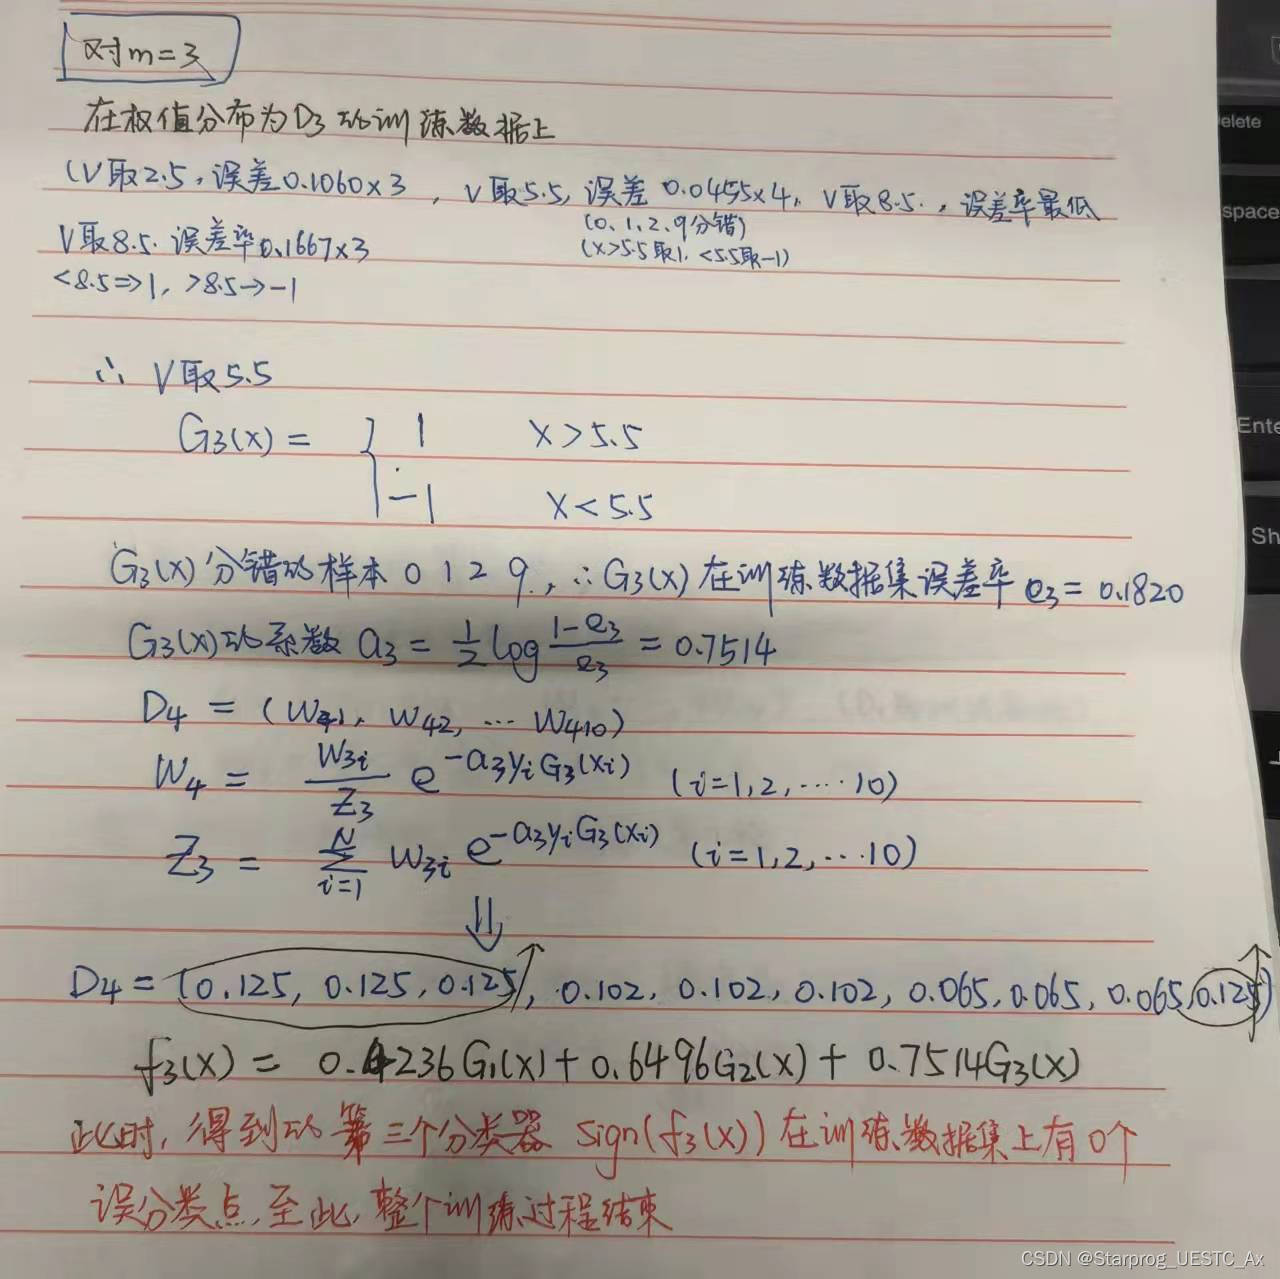 对m=3
在权值分布为D3的训练数据上
(V取2.5,误差0.1060×3,V取5.5,误差0.0455×4,V取8.5.,误差率最低
(0.1.2.9分错)
(x>5.5取1.<5.5取-1)
V取8.5.误差率0.1667×3
<8.5=>1,>8.5→-1
∴ V取5.5
G3(x) = { 1 x>5.5
-1 x<5.5
G3(x)分错的样本 0 1 2 9,∴G3(x)在训练数据集误差率 e3=0.1820
G3(x)的系数 a3 = 1/2 log (1-e3)/e3 = 0.7514
D4 = (W41, W42, … W410)
W4 = W3i/Z3 e^(-a3yiG3(xi)) (i=1,2,…·10)
Z3 = Σ(i=1..N) W3i e^(-a3yiG3(xi)) (i=1,2,…10)
⇓
D4=(0.125, 0.125, 0.125, 0.102, 0.102, 0.102, 0.065, 0.065, 0.065, 0.125)
f3(x) = 0.4236G1(x)+0.6496G2(x)+0.7514G3(x)
此时,得到的第三个分类器 sign(f3(x))在训练数据集上有0个
误分类点,至此,整个训练过程结束
elete
space
Ente
Sh
CSDN @Starprog_UESTC_Ax